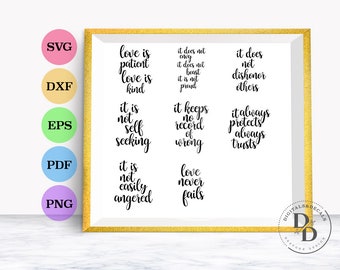 SVG
DXF
EPS
PDF
PNG
love is
patient
love is
kind
it does not
envy
it does not
boast
it is not
proud
it does
not
dishonor
others
it is
not
self
seeking
it keeps
no
record
of
wrong
it always
protects
always
trusts
it is
not
easily
angered
love
never
fails
DB